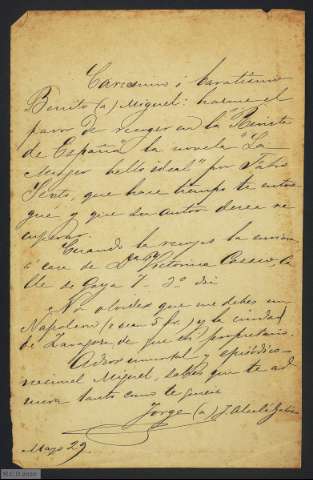 Carisimo i baratisimo
Benito (a) Miguel: hazme el
favor de recoger en la "Revista
de España" la novela "La
Mujer bello ideal" por Fabio
que hace tiempo te entre
gué y que su autor desea re
cuperar.
Cuando la recojas la envias
á casa de D.ª Victorina ca
lle de Goya 7 - 2º
No olvides que me debes un
Napoleon (o sean 5 fr.) y la ciudad
de Zaragoza, de que es propietario.
Adios inmortal y episodico-
nacional Miguel, sabes que te ad
mira tanto como te quiere
Jorge (a) J. Alcalá Galiano
Mayo 29